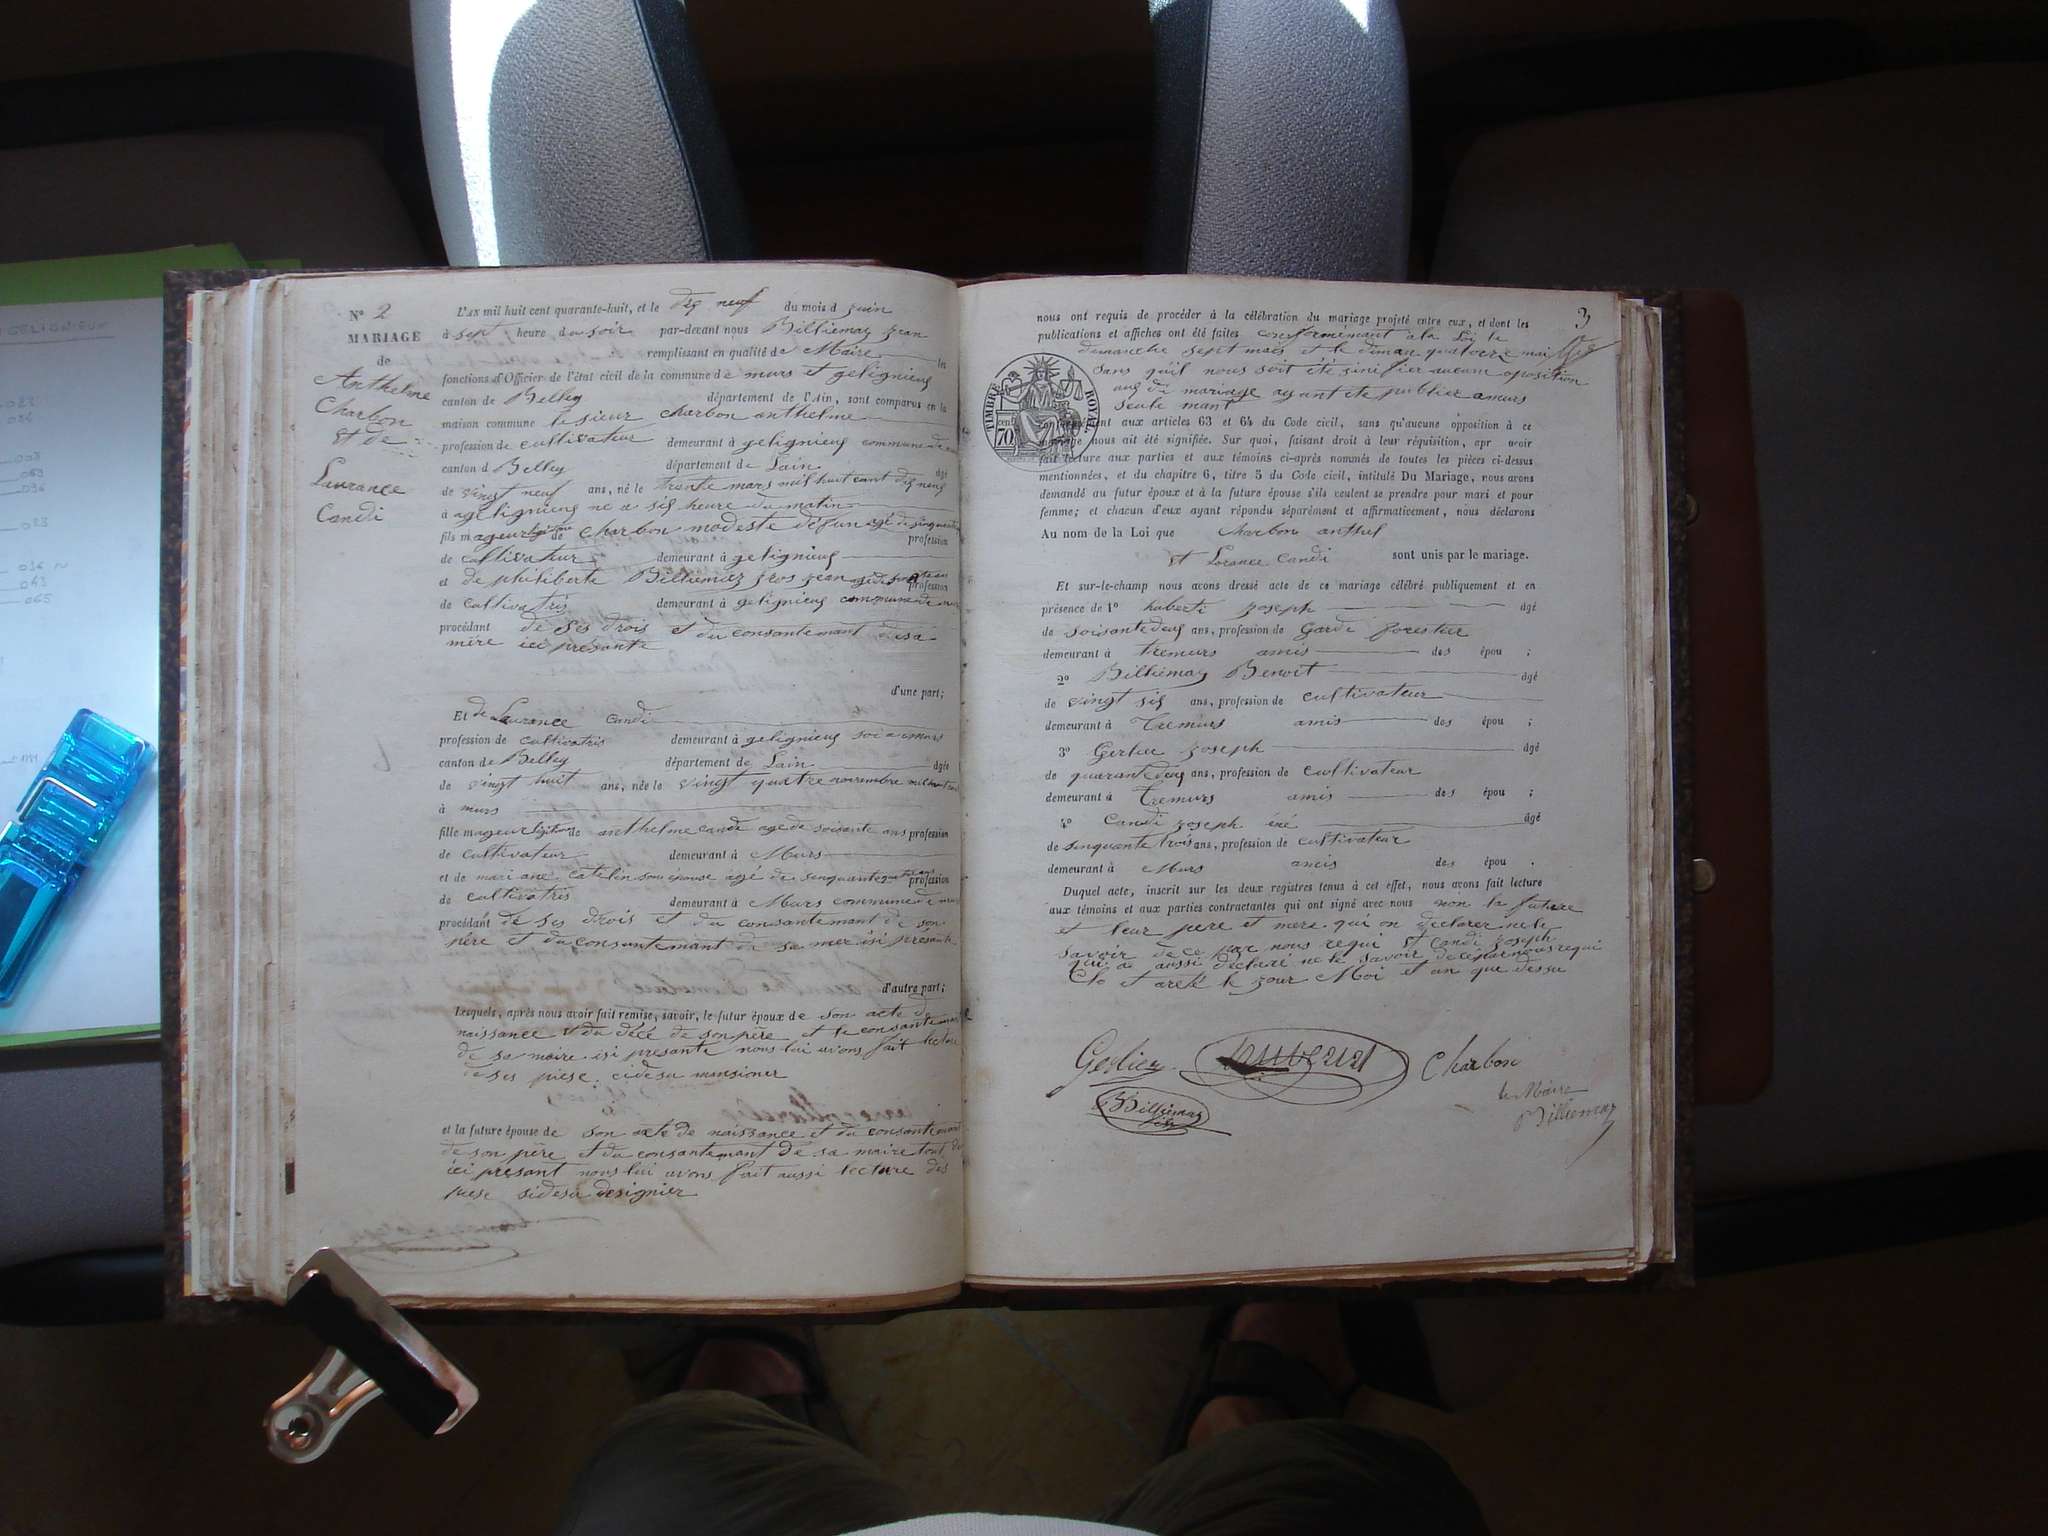 GELIGNIEUX
Nº 2
MARIAGE
de
Anthelme
Charbon
Et de
Laurance
Candi
L'AN mil huit cent quarante-huit, et le dix neuf du mois d juin
à sept heure du soir par-devant nous Billiemaz jean
remplissant en qualité de Maire les
fonctions d'Officier de l'état civil de la commune de murs et gelignieux
canton de Belley département de l'Ain, sont comparus en la
maison commune le sieur charbon anthelme
profession de cultivateur demeurant à gelignieux commune de
canton d Belley département de Lain âgé
de vingt neuf ans, né le trente mars mil huit cent dix neuf
à agelignieux né a six heure du matin
fils mageur légitime de Charbon modeste défun agé de sinquante profession
de cultivateur demeurant à gelignieux
et de philiberte Billiemaz gros jean agé de profession
de cultivatris demeurant à gelignieux commune de murs
procédant de ses drois et du consantemant de sa
mère ici présante
d'une part;
Et de Laurance candi
profession de cultivatris demeurant à gelignieux soi a murs
canton de Belley département de Lain âgée
de vingt huit ans, née le vingt quatre novembre mil huit cent
à murs
fille mageur légitime de anthelme candi agé de soisante ans profession
de cultivateur demeurant à Murs
et de mariane catelin son épouse agé de sinquante quatre ans profession
de cultivatris demeurant à Murs commune de murs
procédant de ses drois et du consantemant de son
père et du consantemant de sa mer isi presante
d'autre part;
Lesquels, après nous avoir fait remise, savoir, le futur époux de son acte de
naissance et du décé de son père et le consantemant
de sa maire isi presante nous lui avons fait lecture
de ses piese cidesu mansioner
et la future épouse de son acte de naissance et du consantemant
de son père et du consantemant de sa maire tout
ici présant nous lui avons fait aussi lecture des
piese sidesu designier
3
nous ont requis de procéder à la célébration du mariage projeté entre eux, et dont les
publications et affiches ont été faites conformémant à la Loi le
demanche sept mais et le diman quatorze mai
sans qu'il nous soit été sinifier aucum oposition
aux di mariage ayant été publier a murs
seule mant
TIMBRE ROYAL
70 cent
conformément aux articles 63 et 64 du Code civil, sans qu'aucune opposition à ce
mariage nous ait été signifiée. Sur quoi, faisant droit à leur réquisition, apr avoir
fait lecture aux parties et aux témoins ci-après nommés de toutes les pièces ci-dessus
mentionnées, et du chapitre 6, titre 5 du Code civil, intitulé Du Mariage, nous avons
demandé au futur époux et à la future épouse s'ils veulent se prendre pour mari et pour
femme; et chacun d'eux ayant répondu séparément et affirmativement, nous déclarons
Au nom de la Loi que Charbon anthel
et Lorance Candi sont unis par le mariage.
Et sur-le-champ nous avons dressé acte de ce mariage célébré publiquement et en
présence de 1º huberti joseph âgé
de soisante deux ans, profession de Garde forestier
demeurant à tremurs amis des épou ;
2º Billiemaz Benoit âgé
de vingt six ans, profession de cultivateur
demeurant à Tremurs amis des épou ;
3º Gerlier joseph âgé
de quarante deux ans, profession de cultivateur
demeurant à Tremurs amis des épou ;
4º Candi joseph éné âgé
de sinquante trois ans, profession de cultivateur
demeurant à Murs amis des épou .
Duquel acte, inscrit sur les deux registres tenus à cet effet, nous avons fait lecture
aux témoins et aux parties contractantes qui ont signé avec nous non la future
et leur pere et mere qui on declarer ne le
savoir de ce par nous requi et Candi joseph
qui a aussi déclaré ne le savoir de ce par nous requi
Clo et areté le jour Moi et an que dessu
Gerlier Charbon
Billiemaz
le Maire
Billiemaz